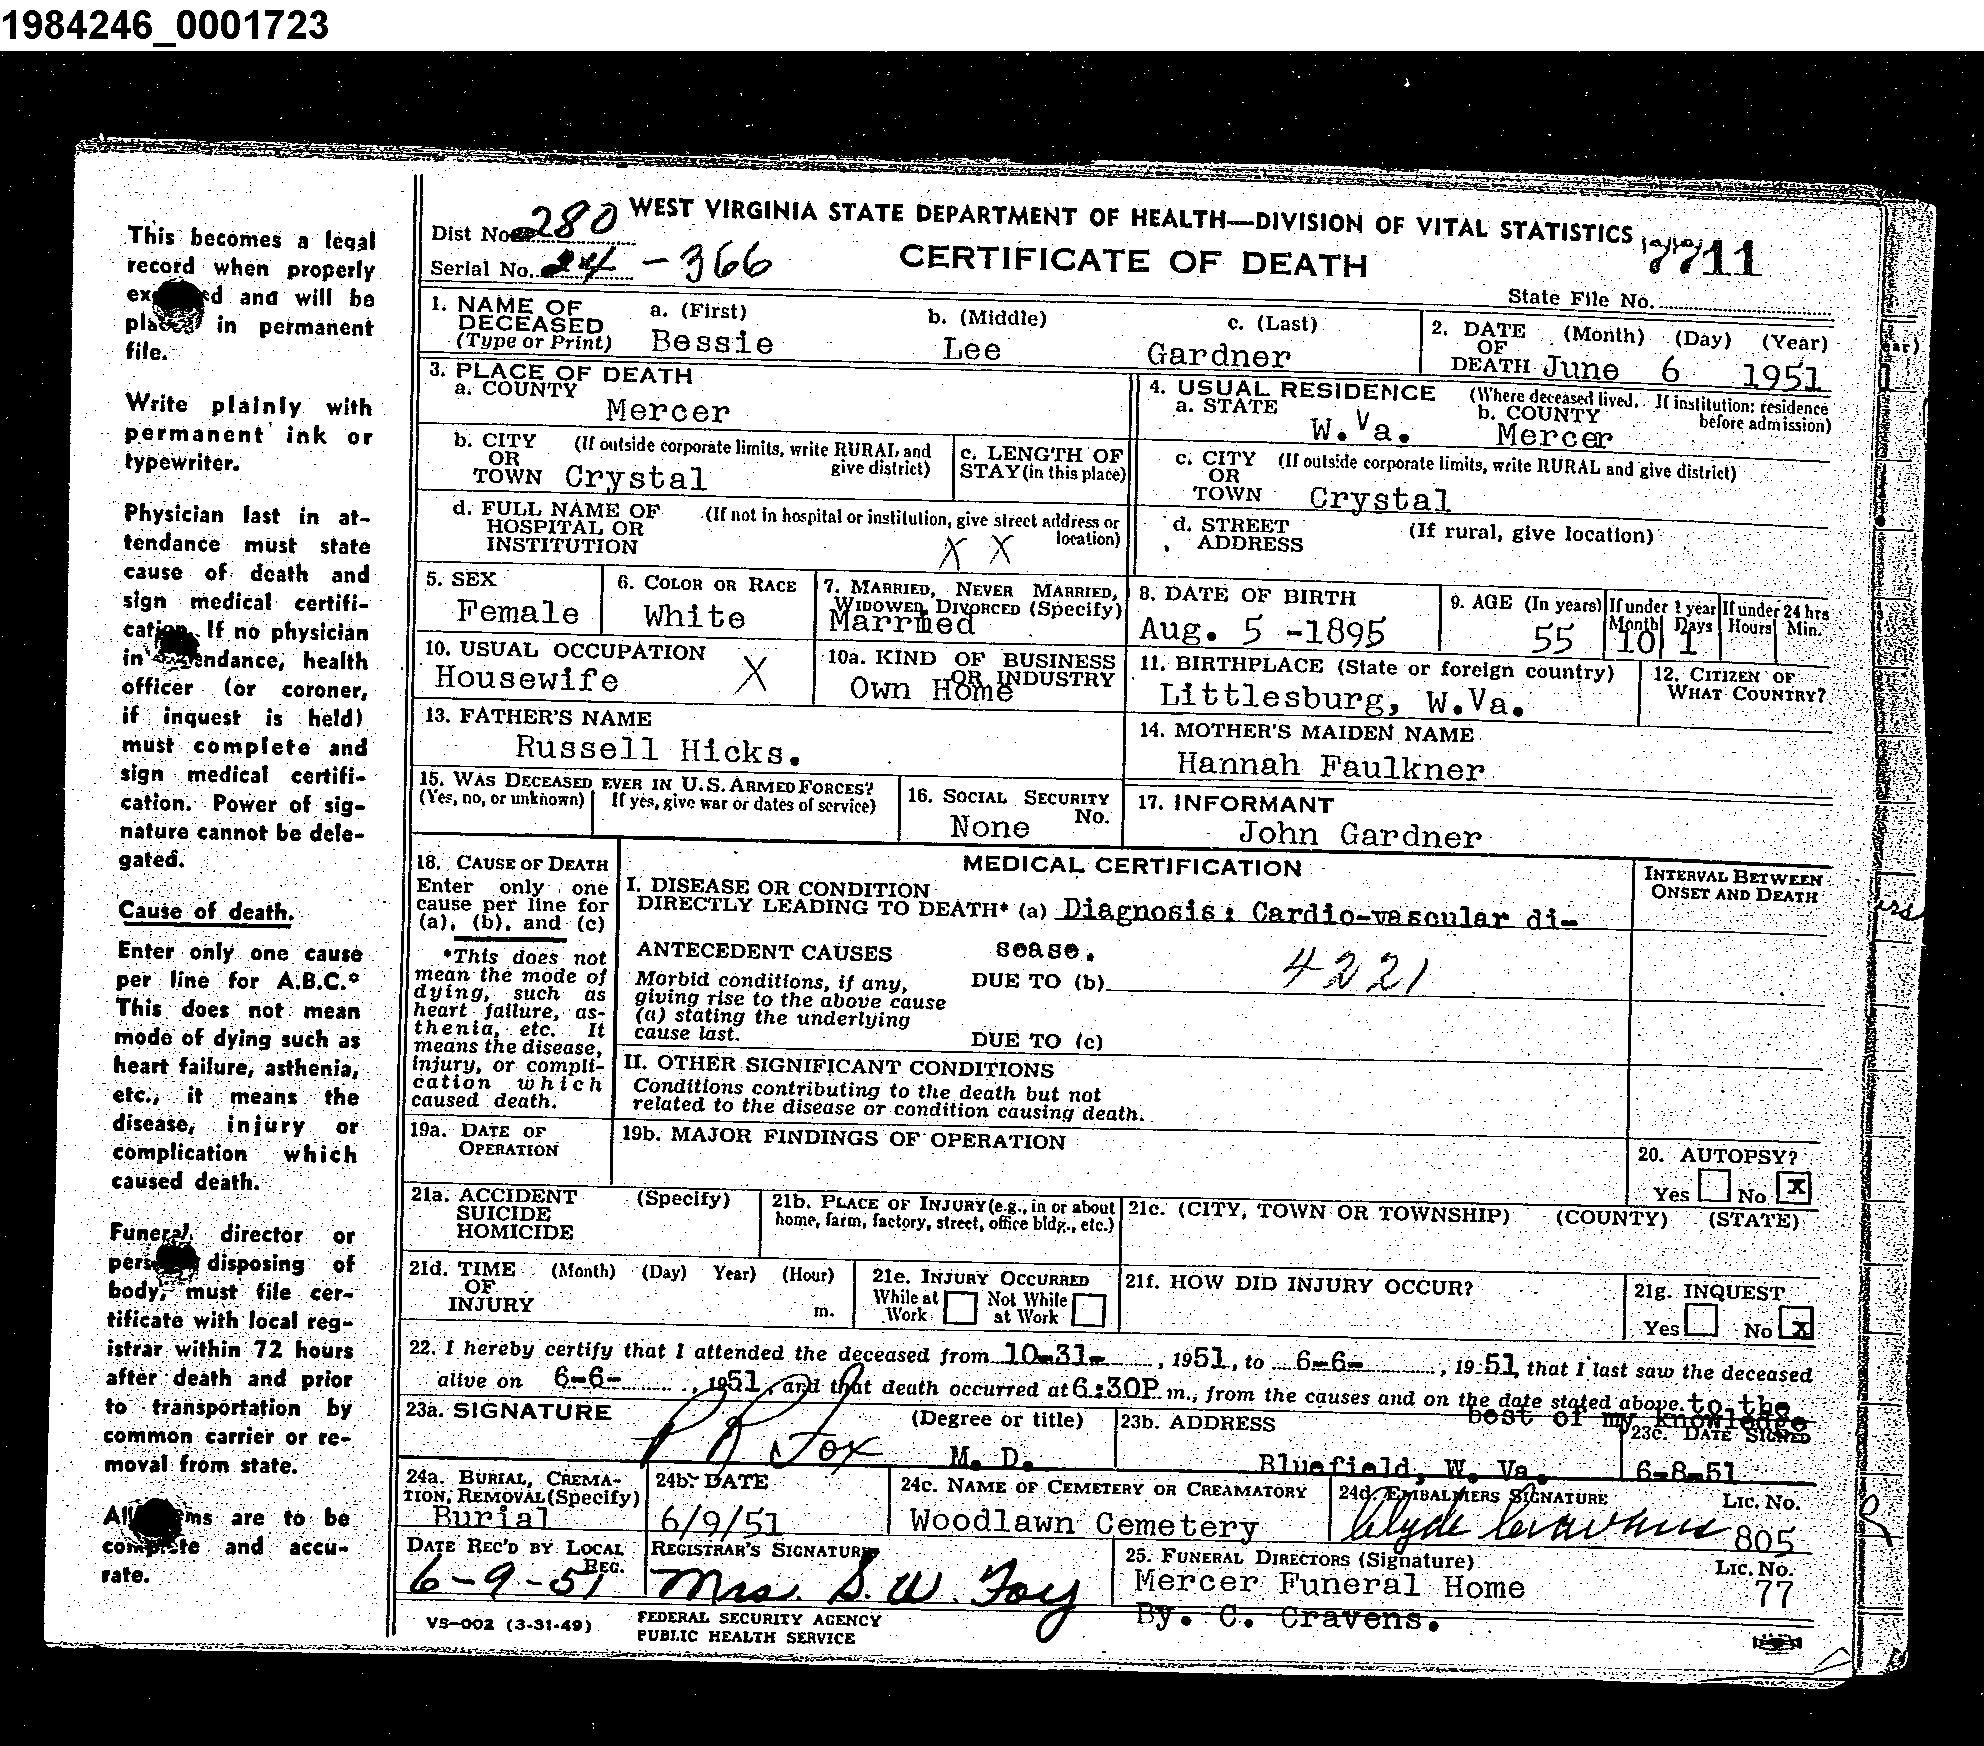 1984246_0001723
This becomes a legal
record when properly
and will be
in permanent
file.
Write plainly with
permanent ink or
typewriter.
Physician last in at-
tendance must state
cause of death and
sign medical certifi-
If no physician
in attendance, health
officer (or coroner,
if inquest is held)
must complete and
sign medical certifi-
cation. Power of sig-
nature cannot be dele-
gated.
Cause of death.
Enter only one cause
per line for A.B.C.*
This does not mean
mode of dying such as
heart failure, asthenia,
etc., it means the
disease, injury or
complication which
caused death.
Funeral director or
disposing of
body, must file cer-
tificate with local reg-
istrar within 72 hours
after death and prior
to transportation by
common carrier or re-
moval from state.
are to be
complete and accu-
rate.
Dist No. 280 WEST VIRGINIA STATE DEPARTMENT OF HEALTH—DIVISION OF VITAL STATISTICS 7711
Serial No. 24 - 366 CERTIFICATE OF DEATH
State File No.
1. NAME OF DECEASED (Type or Print) a. (First) b. (Middle) c. (Last)
Bessie Lee Gardner
2. DATE OF DEATH (Month) (Day) (Year)
June 6 1951
3. PLACE OF DEATH
a. COUNTY
Mercer
4. USUAL RESIDENCE (Where deceased lived. If institution: residence before admission)
a. STATE b. COUNTY
W.Va. Mercer
b. CITY OR TOWN (If outside corporate limits, write RURAL and give district)
Crystal
c. LENGTH OF STAY (in this place)
c. CITY OR TOWN (If outside corporate limits, write RURAL and give district)
Crystal
d. FULL NAME OF HOSPITAL OR INSTITUTION (If not in hospital or institution, give street address or location)
X X
d. STREET ADDRESS (If rural, give location)
5. SEX
Female
6. COLOR OR RACE
White
7. MARRIED, NEVER MARRIED, WIDOWED, DIVORCED (Specify)
Married
8. DATE OF BIRTH
Aug. 5 -1895
9. AGE (In years) If under 1 year Month Days If under 24 hrs Hours Min.
55 10 1
10. USUAL OCCUPATION
Housewife X
10a. KIND OF BUSINESS OR INDUSTRY
Own Home
11. BIRTHPLACE (State or foreign country)
Littlesburg, W.Va.
12. CITIZEN OF WHAT COUNTRY?
13. FATHER'S NAME
Russell Hicks.
14. MOTHER'S MAIDEN NAME
Hannah Faulkner
15. WAS DECEASED EVER IN U.S. ARMED FORCES?
(Yes, no, or unknown) If yes, give war or dates of service)
16. SOCIAL SECURITY No.
None
17. INFORMANT
John Gardner
18. CAUSE OF DEATH
Enter only one
cause per line for
(a), (b), and (c)
*This does not
mean the mode of
dying, such as
heart failure, as-
thenia, etc. It
means the disease,
injury, or compli-
cation which
caused death.
MEDICAL CERTIFICATION
INTERVAL BETWEEN
ONSET AND DEATH
I. DISEASE OR CONDITION
DIRECTLY LEADING TO DEATH* (a) Diagnosis: Cardio-vascular di-
ANTECEDENT CAUSES sease.
Morbid conditions, if any, DUE TO (b) 4221
giving rise to the above cause
(a) stating the underlying
cause last. DUE TO (c)
II. OTHER SIGNIFICANT CONDITIONS
Conditions contributing to the death but not
related to the disease or condition causing death.
19a. DATE OF OPERATION
19b. MAJOR FINDINGS OF OPERATION
20. AUTOPSY?
Yes No X
21a. ACCIDENT SUICIDE HOMICIDE (Specify)
21b. PLACE OF INJURY (e.g., in or about
home, farm, factory, street, office bldg., etc.)
21c. (CITY, TOWN OR TOWNSHIP) (COUNTY) (STATE)
21d. TIME OF INJURY (Month) (Day) Year) (Hour) m.
21e. INJURY OCCURRED
While at Work Not While at Work
21f. HOW DID INJURY OCCUR?
21g. INQUEST
Yes No X
22. I hereby certify that I attended the deceased from 10-31-, 1951, to 6-6-, 1951, that I last saw the deceased
alive on 6-6-, 1951, and that death occurred at 6:30P. m., from the causes and on the date stated above. to the
best of my knowledge
23a. SIGNATURE (Degree or title)
Fox M. D.
23b. ADDRESS
Bluefield, W. Va.
23c. DATE SIGNED
6-8-51
24a. BURIAL, CREMA-
TION, REMOVAL (Specify)
Burial
24b. DATE
6/9/51
24c. NAME OF CEMETERY OR CREAMATORY
Woodlawn Cemetery
24d. EMBALMERS SIGNATURE Lic. No.
Clyde Cravens 805
DATE REC'D BY LOCAL REG.
6-9-51
REGISTRAR'S SIGNATURE
Mrs. S. W. Foy
25. FUNERAL DIRECTORS (Signature) Lic. No.
Mercer Funeral Home 77
By. C. Cravens.
VS-002 (3-31-49) FEDERAL SECURITY AGENCY
PUBLIC HEALTH SERVICE